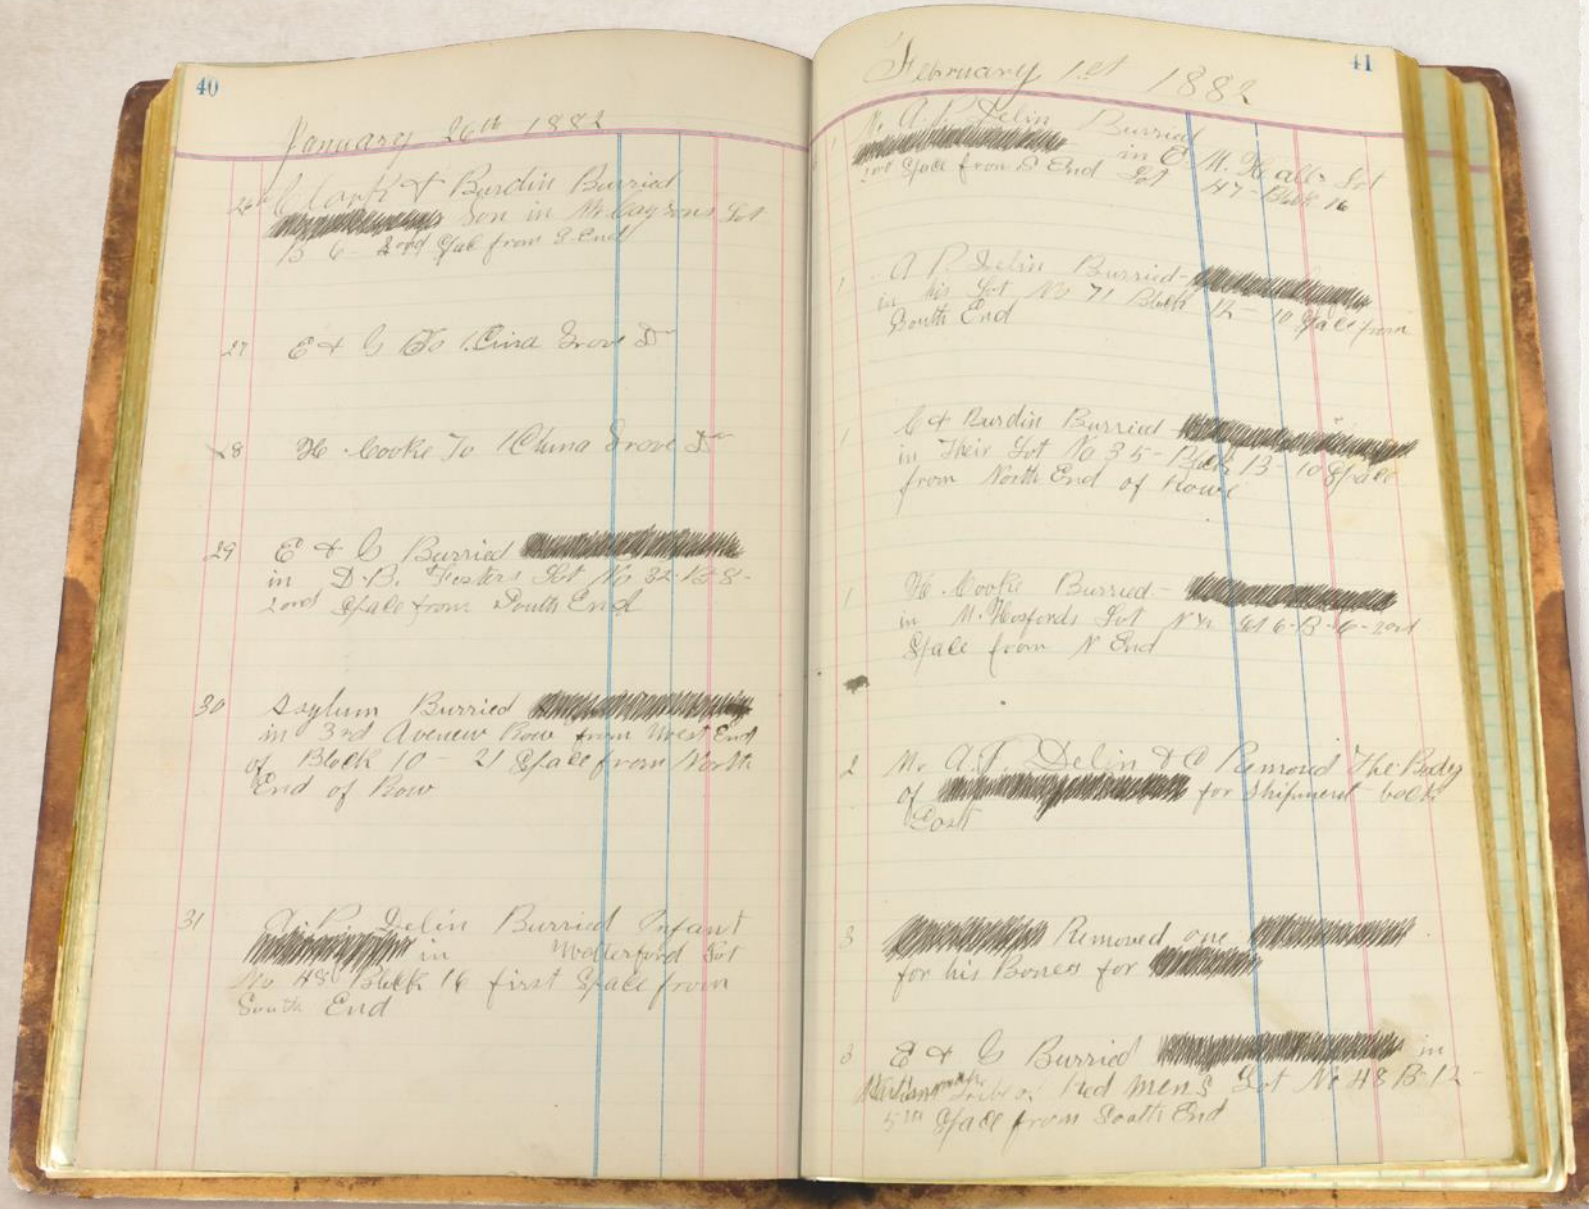 40
January 26th 1882
26th Clark & Burdin Burried
Son in Lot
B 6 2ond Space from S. End
27 E & G To China Grove Dr
28 H. Cooke To China Grove Dr
29 E & G Burried
in D. B. Fosters Lot No 32. B 8-
2ond Space from South End
30 Asylum Burried
in 3rd Avenew Row from West End
of Block 10 - 21 Space from North
End of Row
31 A. P. Delin Burried Infant
in Lot
No 48 Block 16 first Space from
South End
41
February 1st 1882
1 A. P. Delin Burried
in E. M. Healls Lot
Space from S End Lot 47 - Block 16
1 A P. Delin Burried-
in his Lot No 71 Block 12 - 10 Space from
South End
1 C & Burdin Burried
in Their Lot No 35 - Block 13 - 10 Space
from North End of Rowe
1 H. Cooke Burried -
in M. Hosfords Lot B-6-2ond
Space from N End
2 A. P. Delin & C Removed The Body
of for Shipment back
East
3 Removed one
for his Bones for
3 E & G Burried in
Tribe of Red mens Lot No 48 B-12-
5th Space from South End